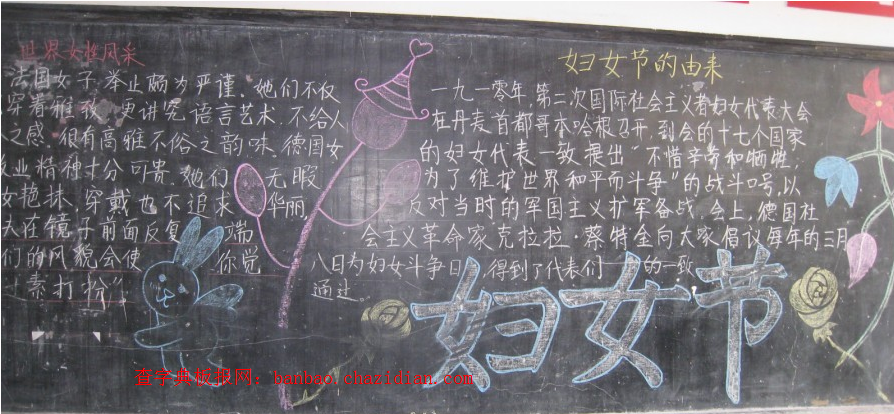 世界女性风采
法国女子,举止颇为严谨。她们不仅
穿着雅致,更讲究语言艺术,不给人
之感,很有高雅不俗之韵味。德国女
业精神十分可贵。她们无暇
女艳抹、穿戴也不追求华丽,
大在镜子前面反复端
们的风貌会使你觉
素打扮"
妇女节的由来
一九一零年,第二次国际社会主义者妇女代表大会
在丹麦首都哥本哈根召开,到会的十七个国家
的妇女代表一致提出"不惜辛劳和牺牲,
为了维护世界和平而斗争"的战斗口号,以
反对当时的军国主义扩军备战。会上,德国社
会主义革命家克拉拉·蔡特金向大家倡议每年的三月
八日为妇女斗争日,得到了代表们的一致
通过。
妇女节
查字典板报网:banbao.chazidian.com